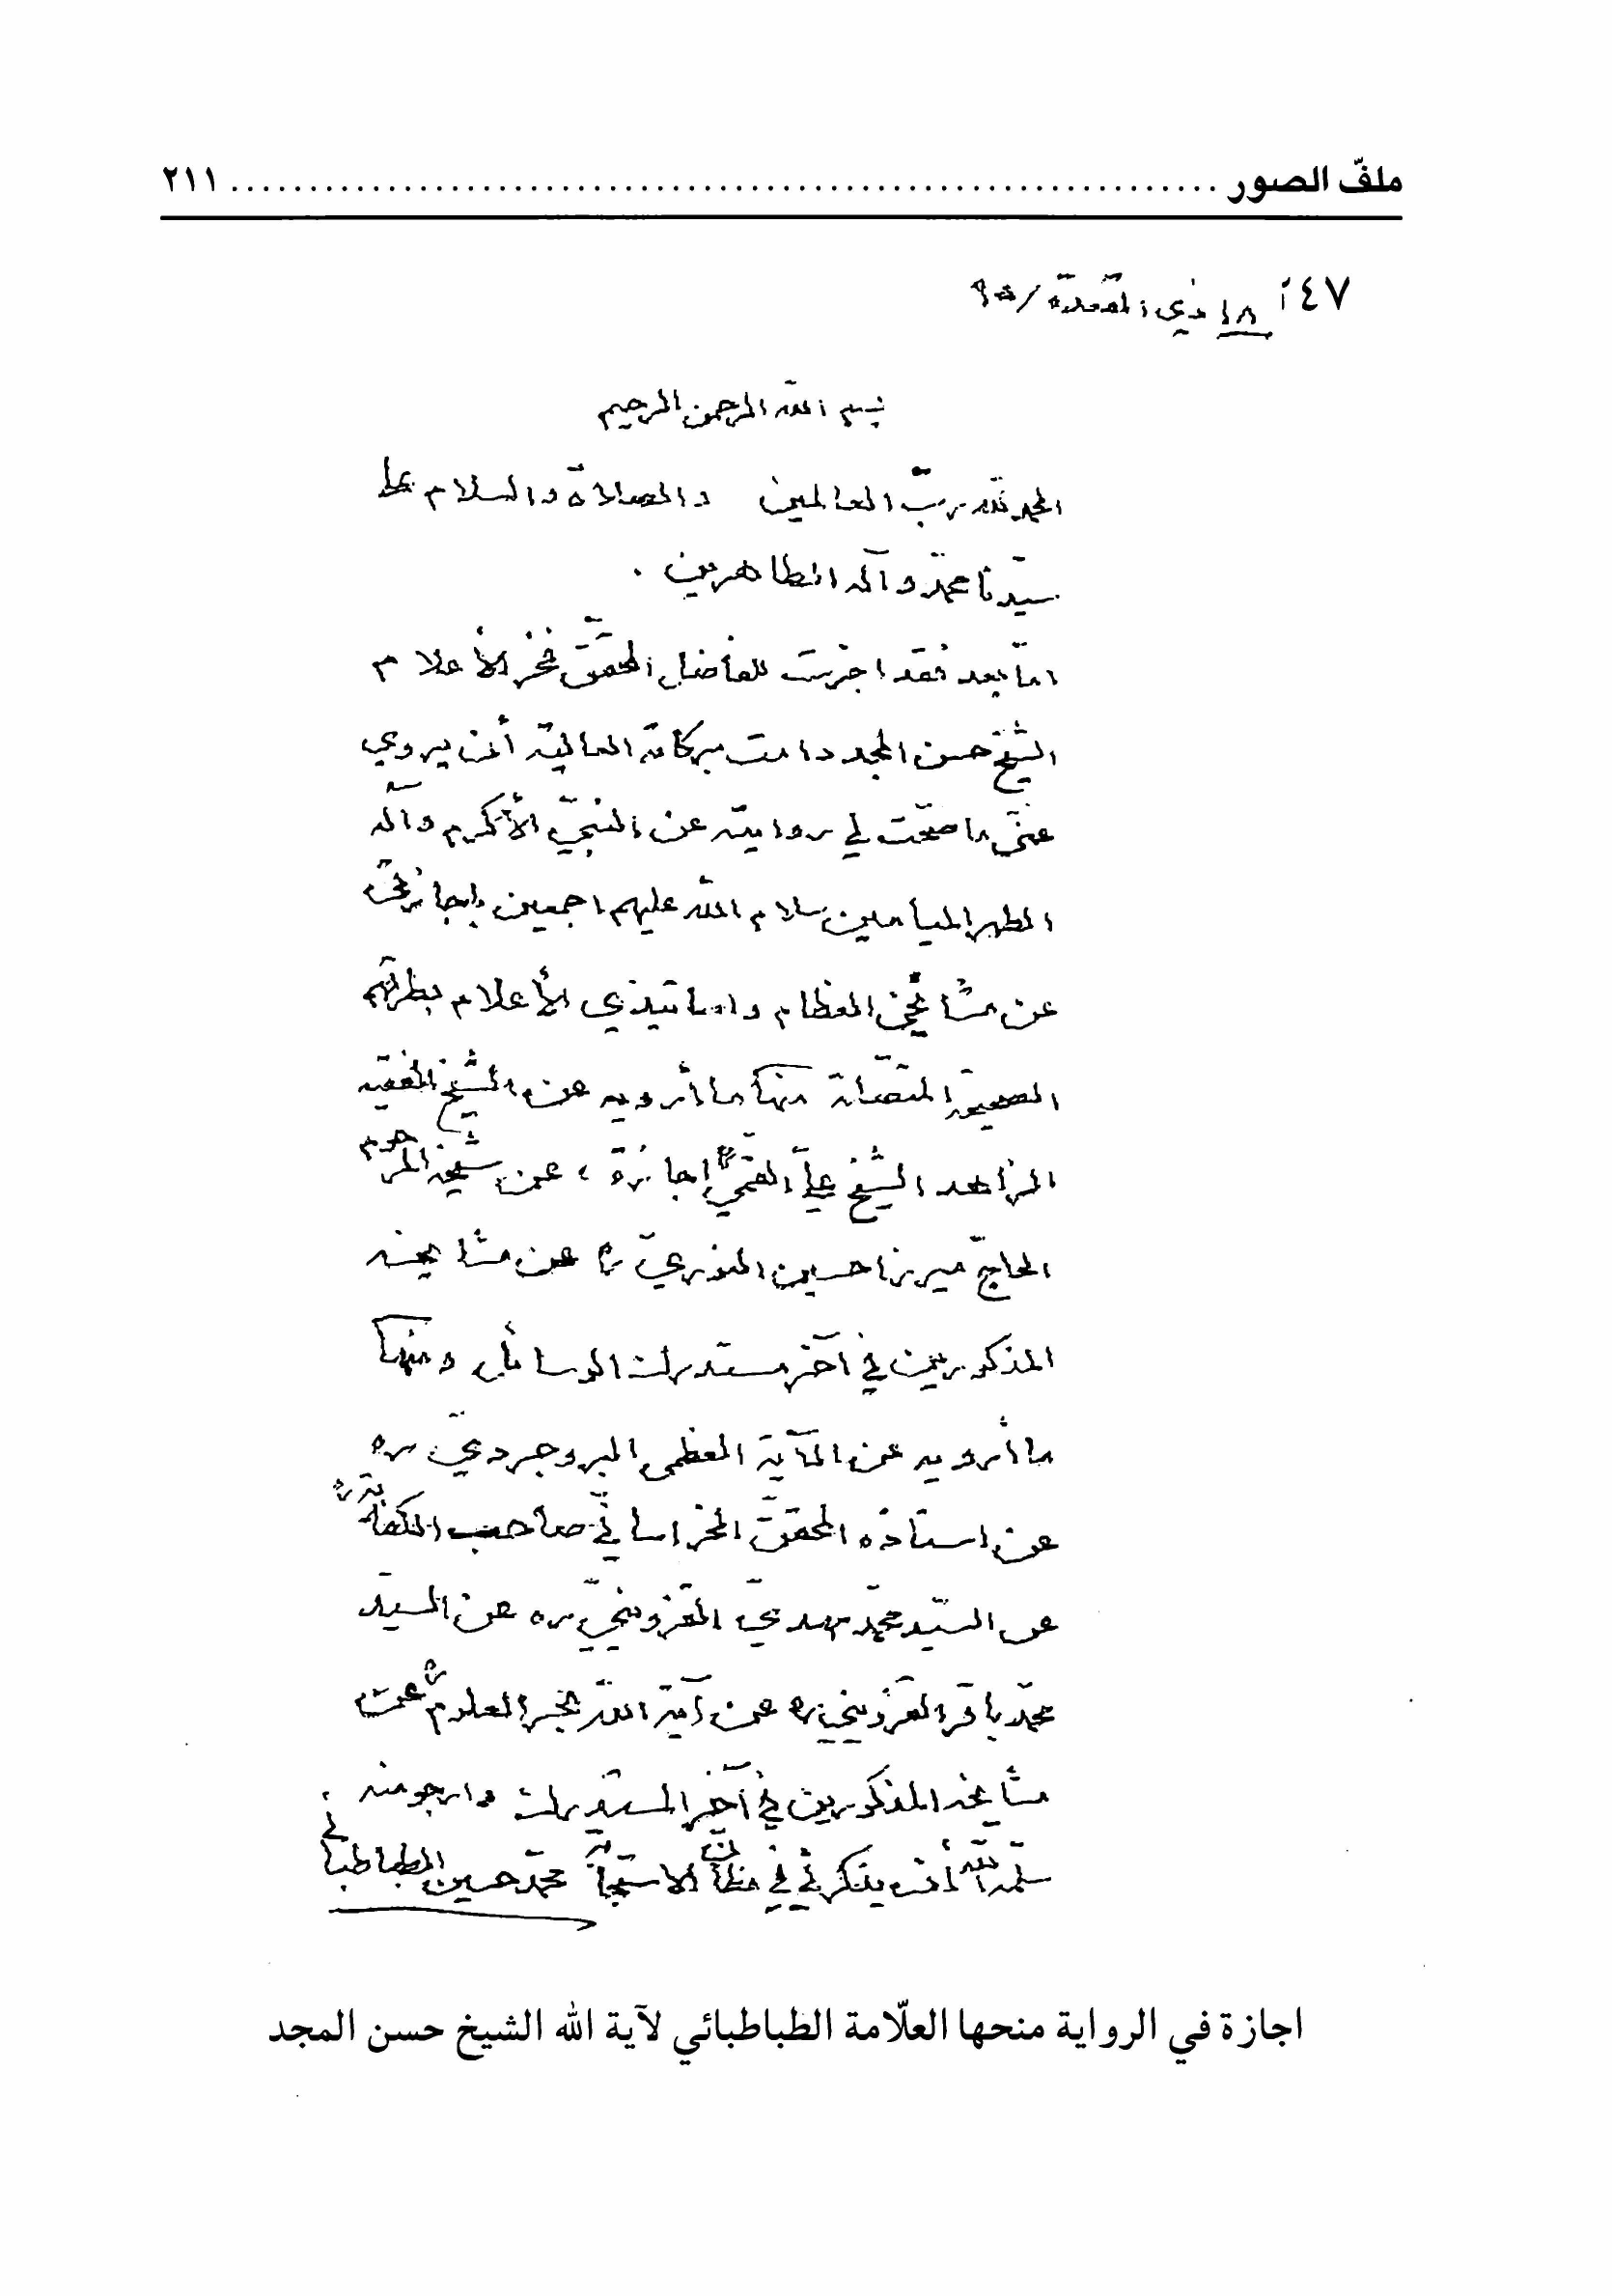 ملفّ الصور ........................................................ ٢١١
٤٧ آ ١٨ ذي القعدة / ٩٥
بسم الله الرحمن الرحيم
الحمد لله ربّ العالمين والصلاة والسلام على
سيّدنا محمّد وآله الطاهرين .
امّا بعد فقد اجزت للفاضل المحقّق فخر الأعلام
الشيخ حسن المجد دامت بركاته العالية أن يروي
عنّي ما صحّت لي روايته عن النبيّ الأكرم وآله
الطهر الميامين سلام الله عليهم اجمعين باجازتي
عن مشائخي العظام واساتيذي الأعلام بطرقهم
الصحيحة المتصلة منها ما أرويه عن الشيخ الفقيه
الزاهد الشيخ عليّ القمّي ره اجازة ، عن شيخه المرحوم
الحاجّ ميرزا حسين النوريّ ره عن مشايخه
المذكورين في آخر مستدرك الوسائل ومنها
ما أرويه عن الآية العظمى البروجرديّ ره
عن استاذه المحقّق الخراسانيّ صاحب الكفاية ره
عن السيّد محمّد مهديّ القزوينيّ ره عن السيّد
محمّد باقر القزويني ره عن آية الله بحر العلوم ره عن
مشائخه المذكورين في آخر المستدرك وارجو منه
سلّمه الله أن يذكرني في مظانّ الاستجابة محمّد حسين الطباطبائي
اجازة في الرواية منحها العلّامة الطباطبائي لآية الله الشيخ حسن المجد